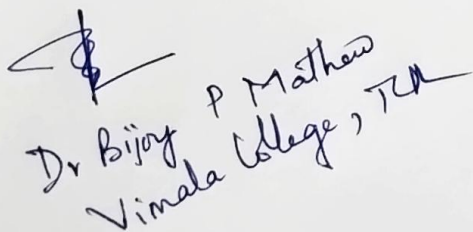 Dr Bijoy P Mathew
Vimala College, TCR